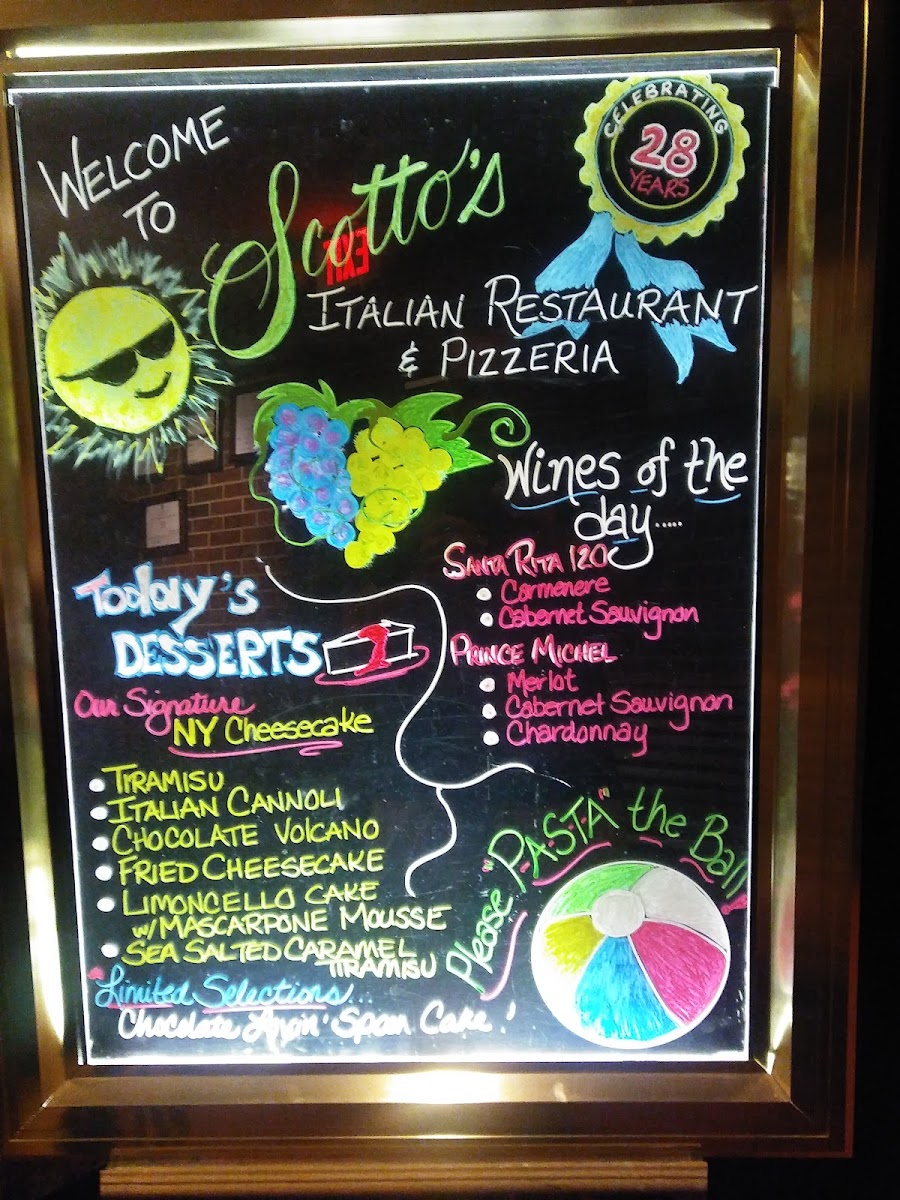 WELCOME
TO
Scotto's
ITALIAN RESTAURANT
& PIZZERIA
CELEBRATING
28
YEARS
EXIT
Wines of the
day.....
SANTA RITA 120
• Carmenere
• Cabernet Sauvignon
PRINCE MICHEL
• Merlot
• Cabernet Sauvignon
• Chardonnay
Today's
DESSERTS
Our Signature
NY Cheesecake
• TIRAMISU
• ITALIAN CANNOLI
• CHOCOLATE VOLCANO
• FRIED CHEESECAKE
• LIMONCELLO CAKE
w/ MASCARPONE MOUSSE
• SEA SALTED CARAMEL
TIRAMISU
Limited Selections...
Chocolate Lovin' Spoon Cake!
Please "PASTA" the Ball!